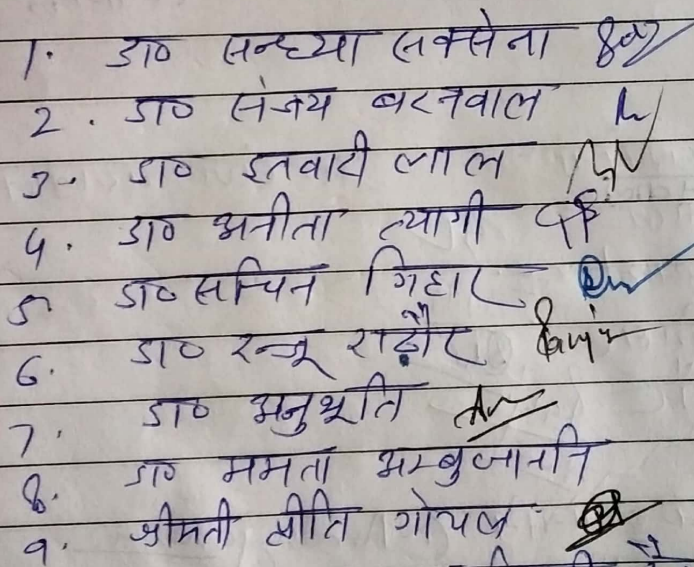 1. डा० सन्ध्या सक्सेना
2. डा० संजय बरनवाल
3. डा० इतवारी लाल
4. डा० अनीता त्यागी
5 डा० सचिन गिहार
6. डा० रन्जू राठौर
7. डा० अनुभूति
8. डा० ममता
9. श्रीमती गोयल